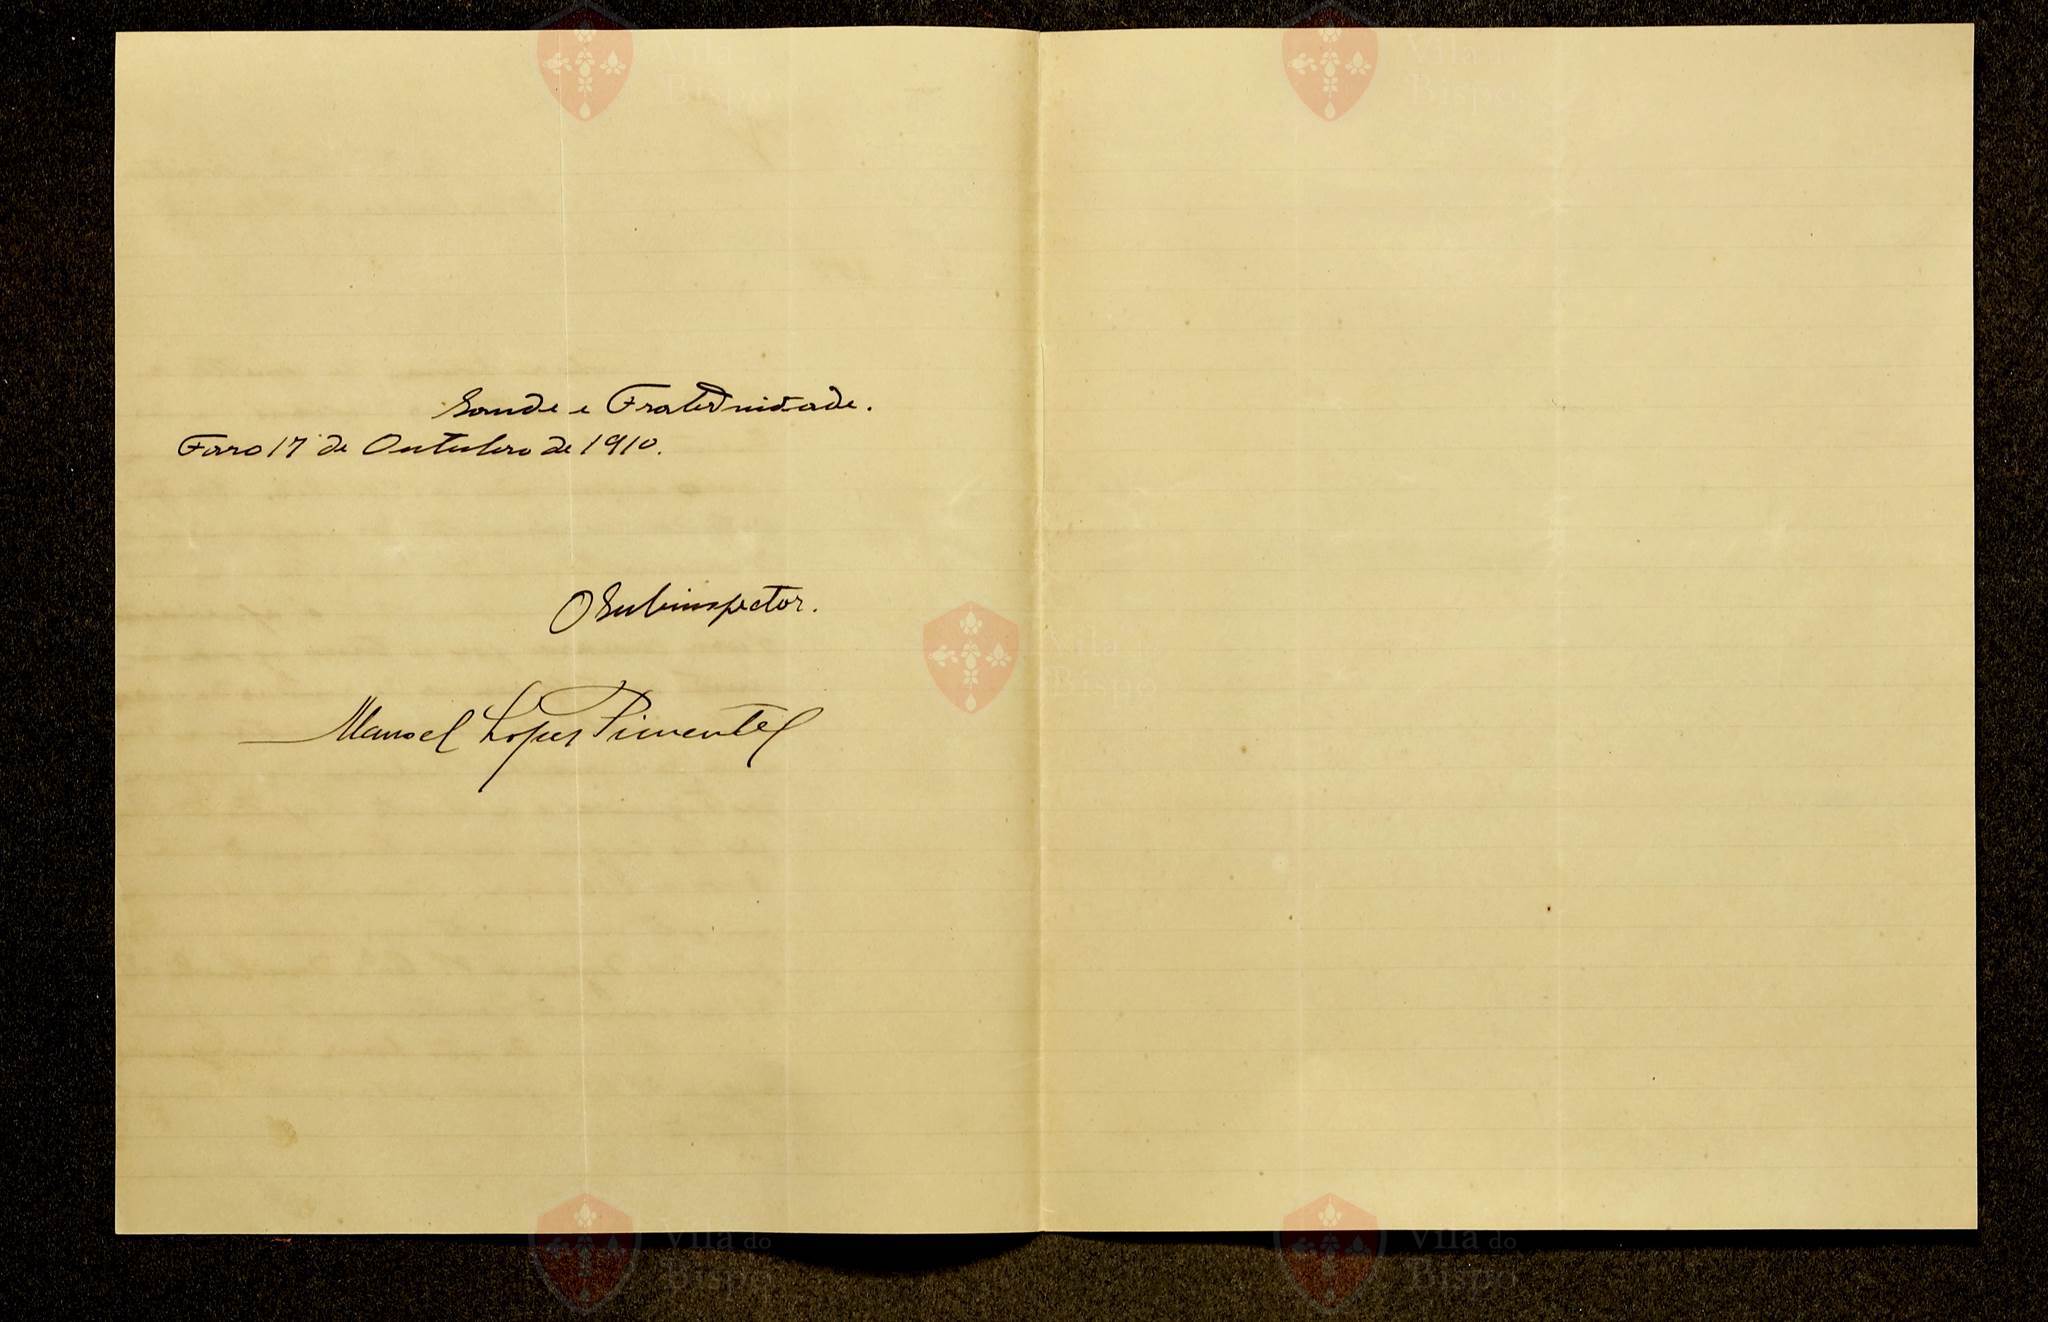 Vila do
Bispo
Vila do
Bispo
Saude e Fraternidade.
Faro 17 de Outubro de 1910.
O Subinspector.
Vila do
Bispo
Manoel Lopes Pimentel
Vila do
Bispo
Vila do
Bispo